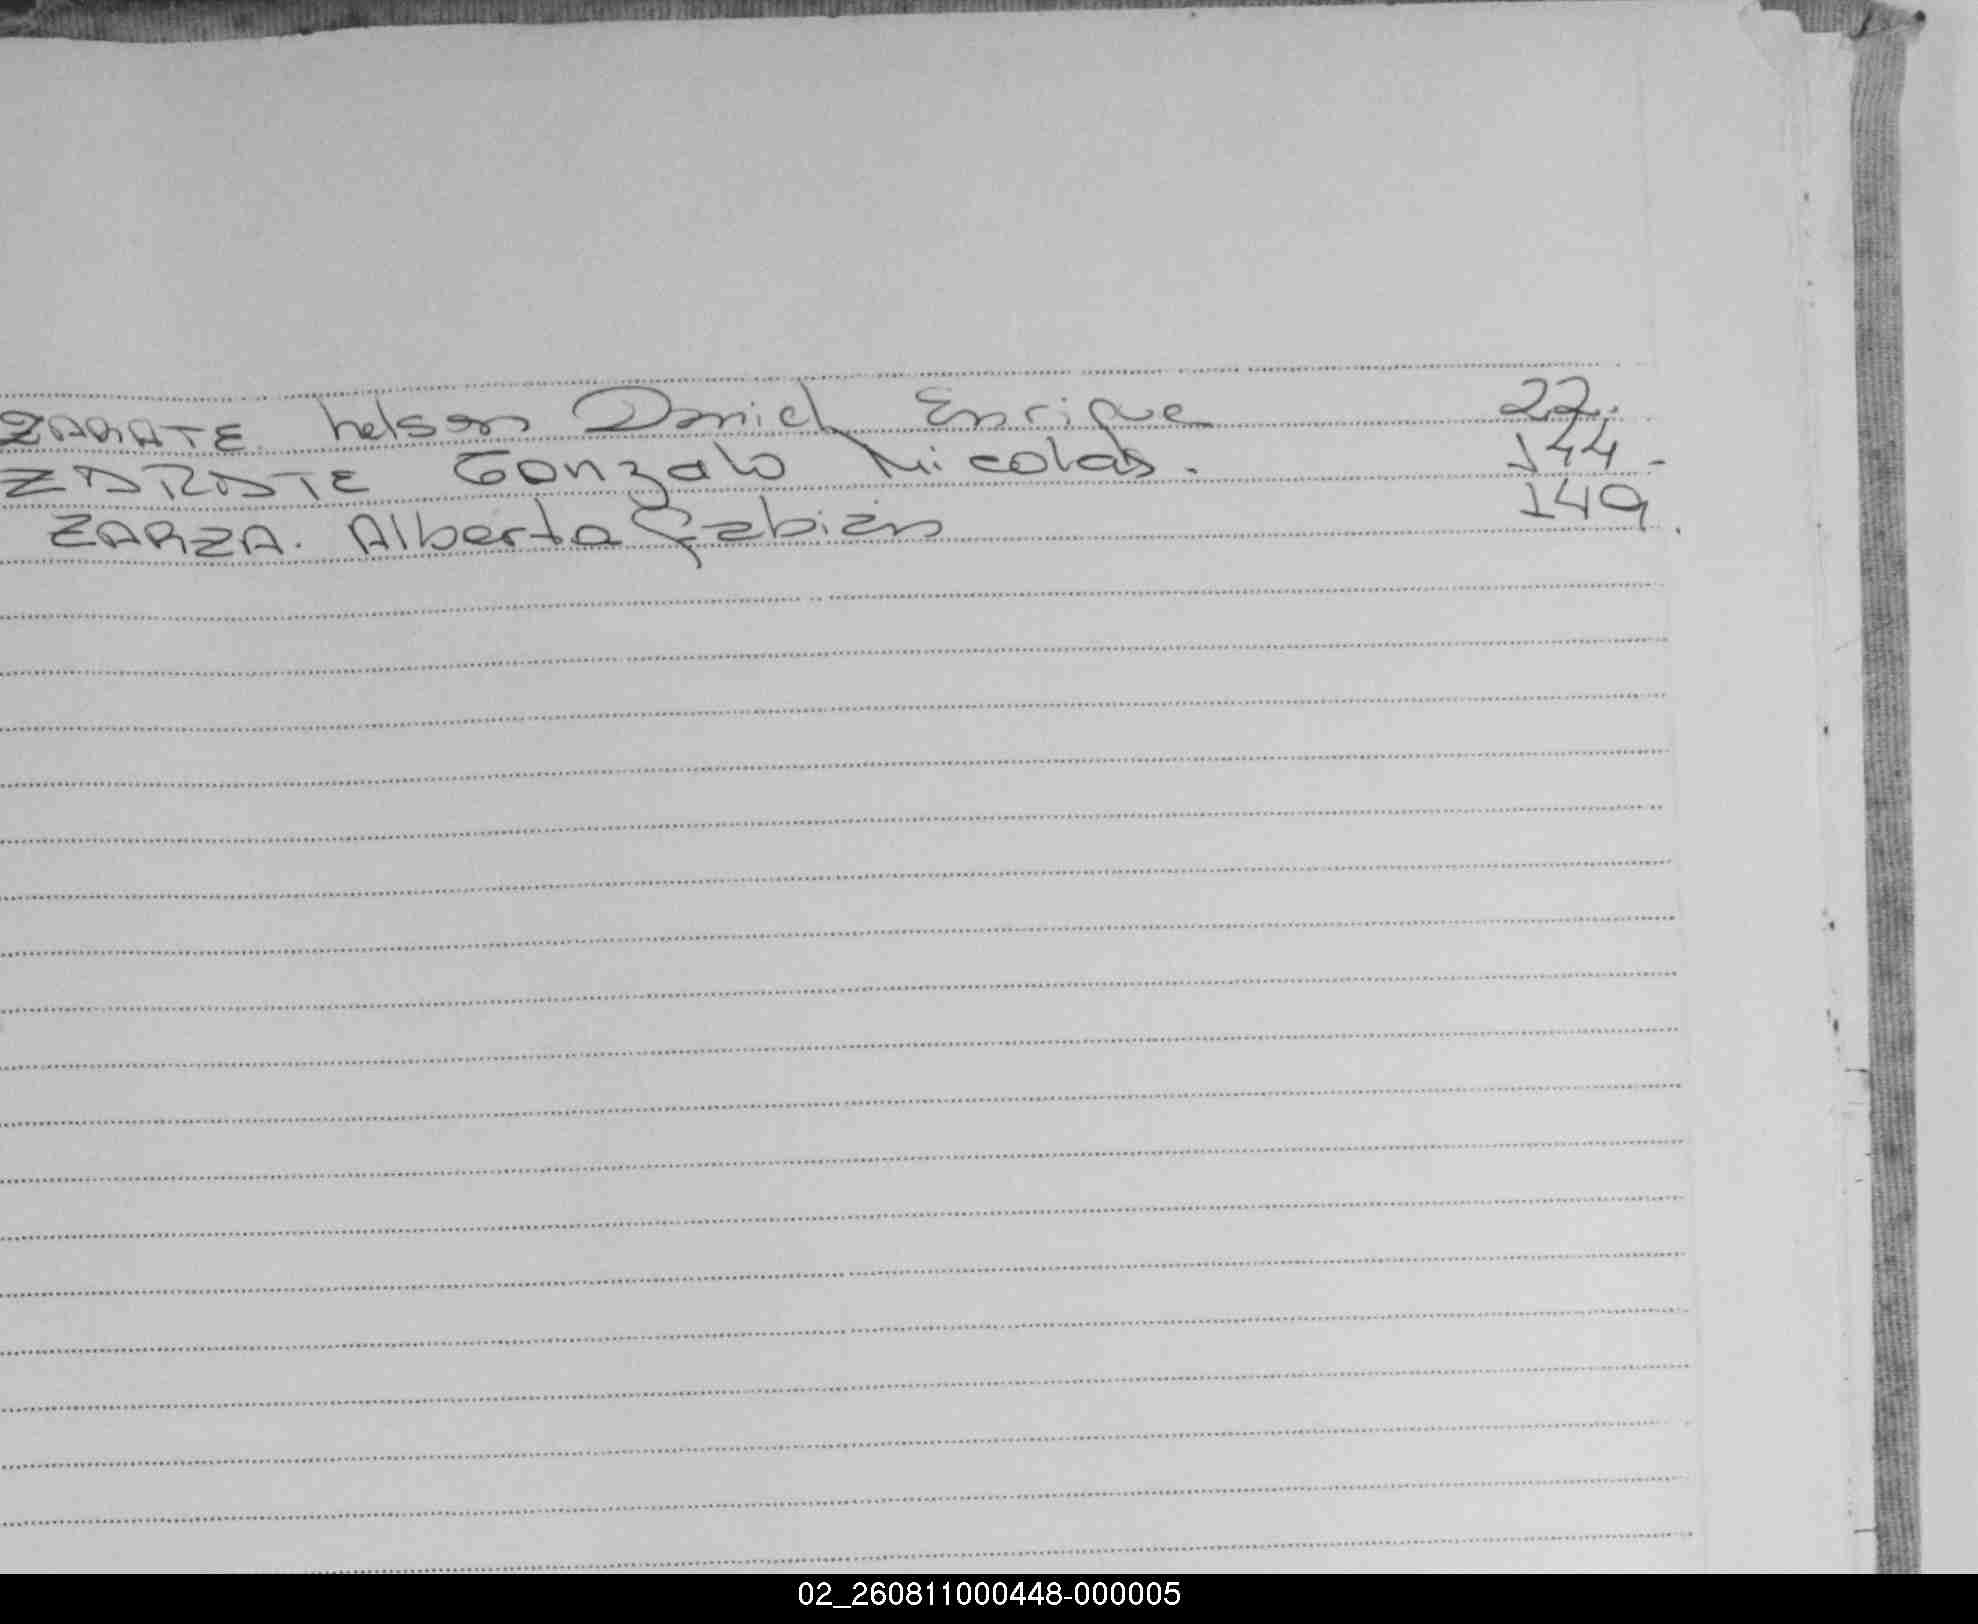 ZARATE. Nelson Daniel Enrique 22.
ZARATE Gonzalo Nicolas. 144-
ZARZA. Alberto Fabián 149.
02_260811000448-000005